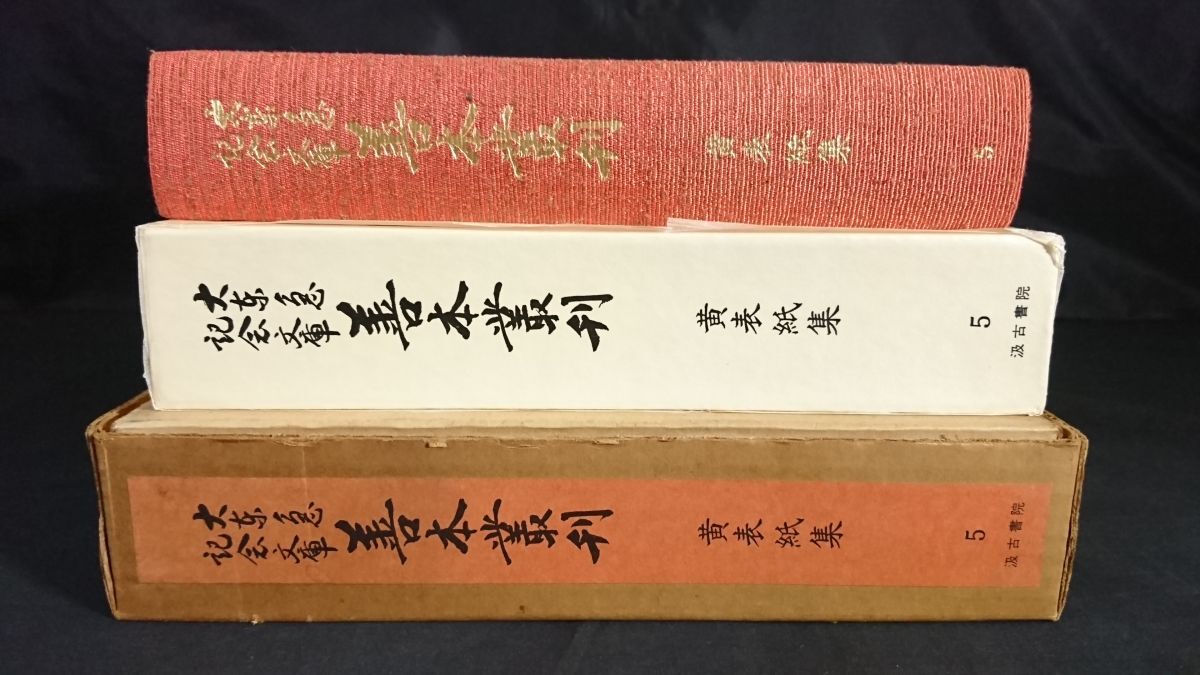 大東急
記念文庫
善本叢刊
黄表紙集
5
大東急
記念文庫
善本叢刊
黄表紙集
5
汲古書院
大東急
記念文庫
善本叢刊
黄表紙集
5
汲古書院